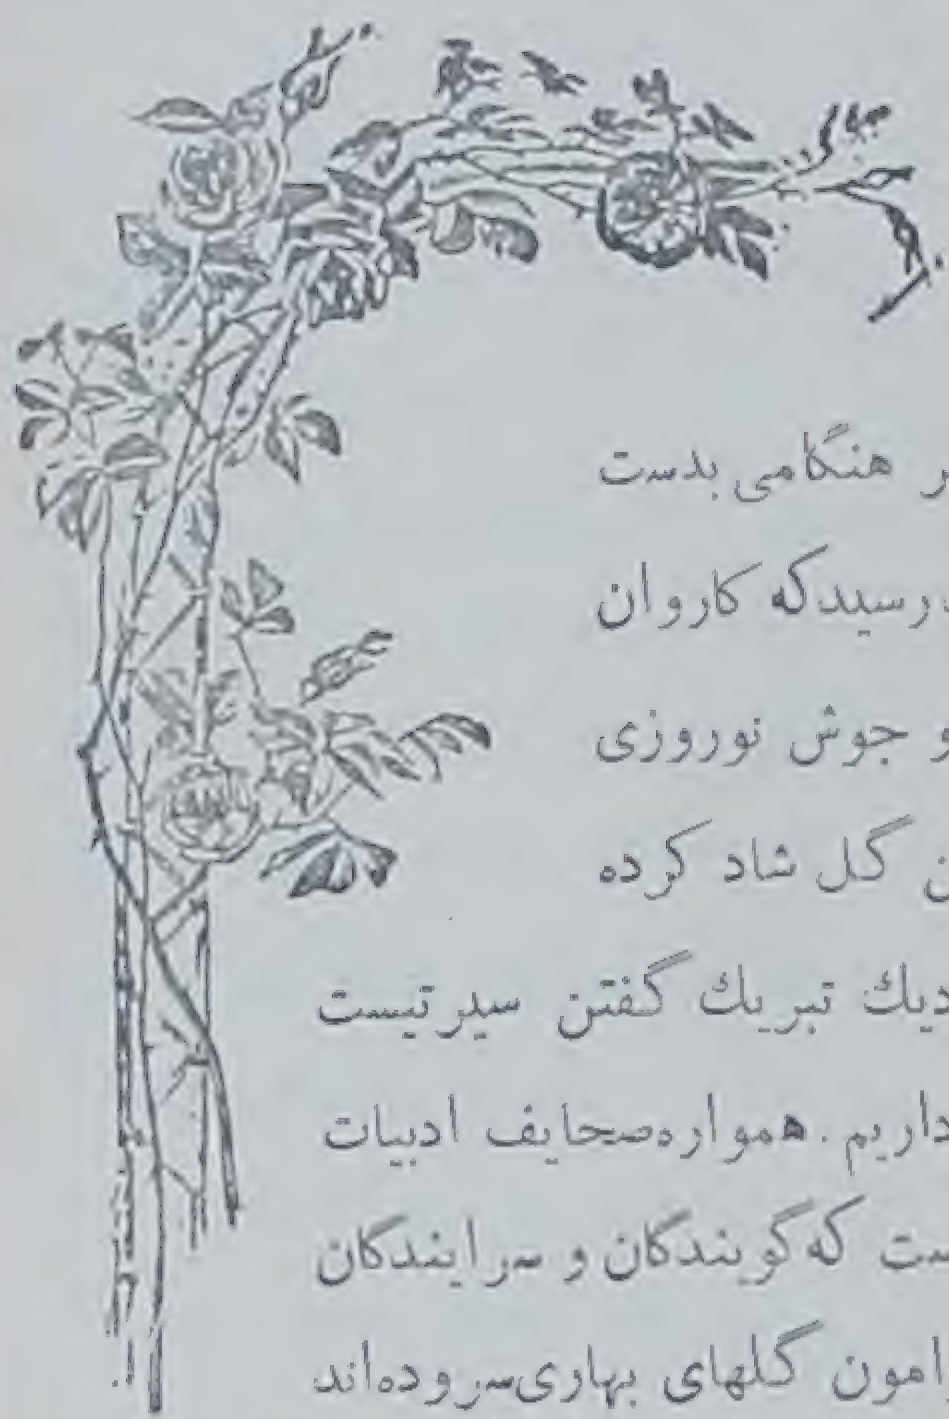 هنگامی بدست
رسید که کاروان
و جوش نوروزی
گل شاد کرده
تبریك گفتن سیرتیست
داریم . همواره صحایف ادبیات
که گویندگان و سرایندگان
گلهای بهاری سروده‌اند